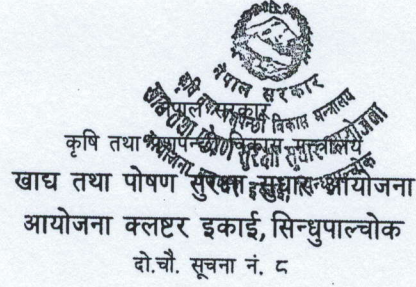 नेपाल सरकार
नेपाल सरकार
कृषि तथा पशुपन्छी विकास मन्त्रालय
खाद्य तथा पोषण सुरक्षा सुधार आयोजना
आयोजना क्लष्टर इकाई, सिन्धुपाल्चोक
दो.चौ. सूचना नं. ८